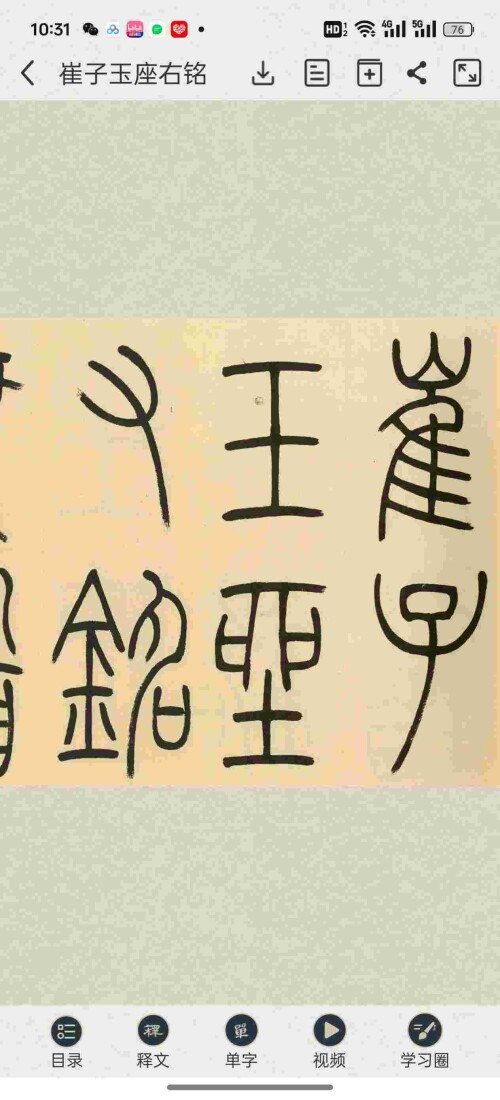 10:31 HD 1 2 4G 5G 76
崔子玉座右铭
崔子
玉坐
又銘
目录 释文 单字 视频 学习圈